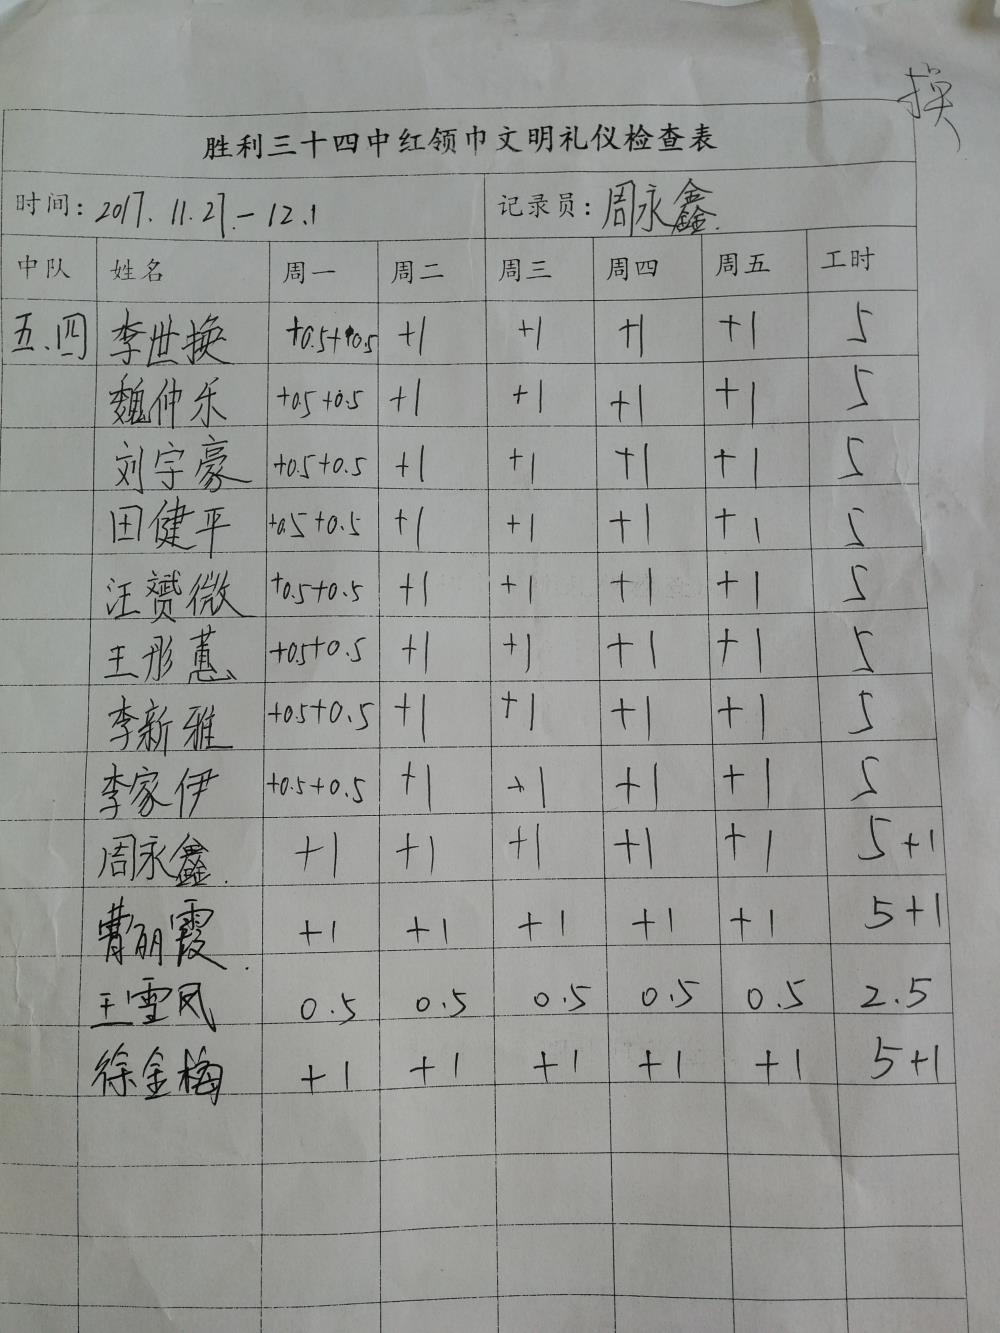 换
胜利三十四中红领巾文明礼仪检查表
时间: 2017.11.27.-12.1 记录员: 周永鑫.
中队 姓名 周一 周二 周三 周四 周五 工时
五.四 李世换 +0.5+0.5 +1 +1 +1 +1 5
魏仲乐 +0.5+0.5 +1 +1 +1 +1 5
刘宇豪 +0.5+0.5 +1 +1 +1 +1 5
田健平 +0.5+0.5 +1 +1 +1 +1 5
汪赟微 +0.5+0.5 +1 +1 +1 +1 5
王彤蕙 +0.5+0.5 +1 +1 +1 +1 5
李新雅 +0.5+0.5 +1 +1 +1 +1 5
李家伊 +0.5+0.5 +1 +1 +1 +1 5
周永鑫. +1 +1 +1 +1 +1 5+1
曹丽霞. +1 +1 +1 +1 +1 5+1
王雪凤 0.5 0.5 0.5 0.5 0.5 2.5
徐金梅 +1 +1 +1 +1 +1 5+1